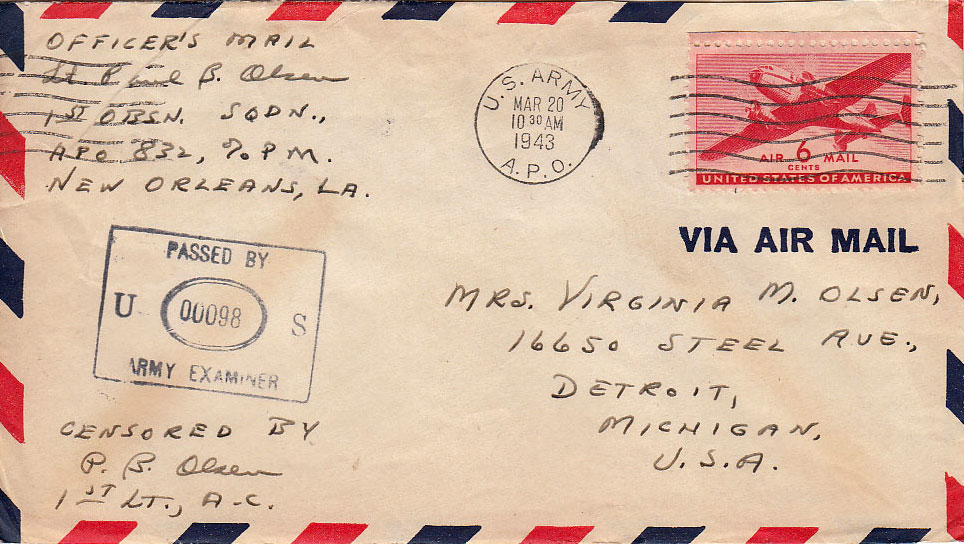 OFFICER'S MAIL
Lt Paul B. Olsen
1ST OBSN. SQDN.,
APO 832, % P.M.
NEW ORLEANS, LA.
U.S. ARMY
MAR 20
10 30 AM
1943
A.P.O.
AIR 6 MAIL
CENTS
UNITED STATES OF AMERICA
VIA AIR MAIL
PASSED BY
U 00098 S
ARMY EXAMINER
MRS. VIRGINIA M. OLSEN,
16650 STEEL AVE.,
DETROIT,
MICHIGAN,
U.S.A.
CENSORED BY
P. B. Olsen
1ST LT., A.C.